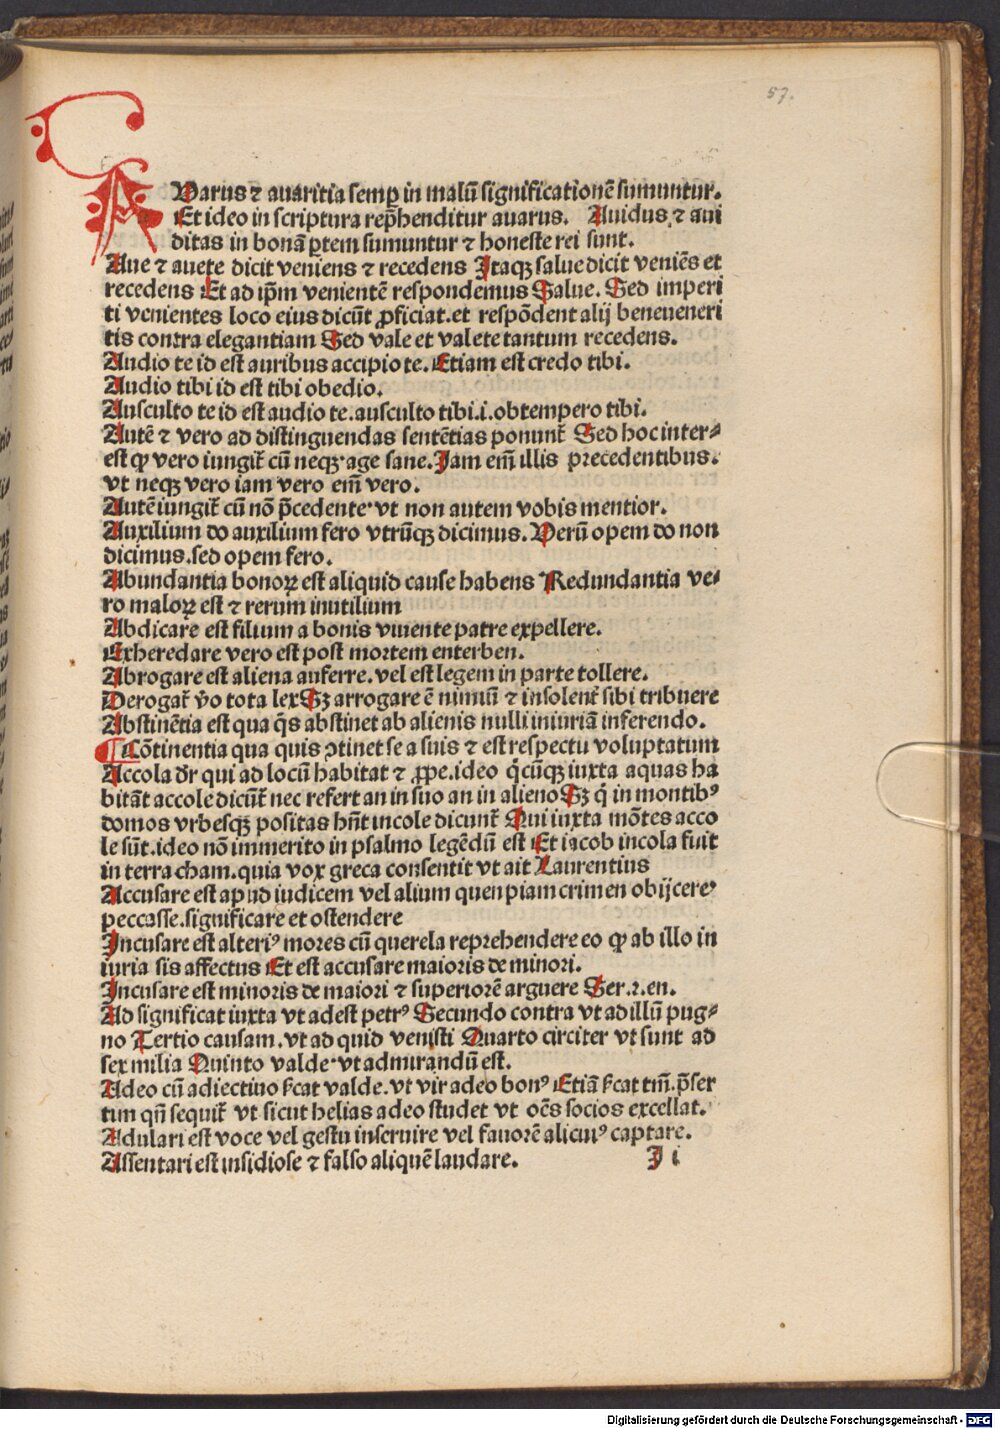 57.
AUarus ⁊ auaritia semꝑ in malū significationē sumuntur.
Et ideo in scriptura rep̄henditur auarus. Auidus ⁊ aui
ditas in bonā ꝑtem sumuntur ⁊ honeste rei sunt.
Aue ⁊ auete dicit veniens ⁊ recedens Itaqꝫ salue dicit veniēs et
recedens Et ad ip̄m venientē respondemus Salue. Sed imperi
ti venientes loco eius dicūt ꝓficiat. et respōdent alij beneueneri
tis contra elegantiam Sed vale et valete tantum recedens.
Audio te id est auribus accipio te. Etiam est credo tibi.
Audio tibi id est tibi obedio.
Ausculto te id est audio te. ausculto tibi .i. obtempero tibi.
Autē ⁊ vero ad distinguendas sentētias ponunt᷑ Sed hoc inter⸗
est ꝙ vero iungit᷑ cū neqꝫ· age sane. Iam em̄ illis precedentibus.
vt neqꝫ vero iam vero em̄ vero.
Autē iungit᷑ cū nō p̄cedente· vt non autem vobis mentior.
Auxilium do auxilium fero vtrūqꝫ dicimus. Verū opem do non
dicimus. sed opem fero.
Abundantia bonoꝝ est aliquid cause habens Redundantia ve⸗
ro maloꝝ est ⁊ rerum inutilium
Abdicare est filium a bonis viuente patre expellere.
Exheredare vero est post mortem enterben.
Abrogare est aliena auferre. vel est legem in parte tollere.
Derogat᷑ v̄o tota lex Sꝫ arrogare ē nimiū ⁊ insolent᷑ sibi tribuere
Abstinētia est qua q̄s abstinet ab alienis nulli iniuriā inferendo.
¶ Cōtinentia qua quis ↄtinet se a suis ⁊ est respectu voluptatum
Accola dr̄ qui ad locū habitat ⁊ ꝓpe. ideo q̄cūqꝫ iuxta aquas ha
bitāt accole dicūt᷑ nec refert an in suo an in alieno Sꝫ q̄ in montibꝰ
domos vrbesqꝫ positas hn̄t incole dicunt᷑ Qui iuxta mōtes acco
le sūt. ideo nō immerito in psalmo legēdū est Et iacob incola fuit
in terra cham. quia vox greca consentit vt ait Laurentius
Accusare est apud iudicem vel alium quenpiam crimen obijcere·
peccasse. significare et ostendere
Incusare est alteriꝰ mores cū querela reprehendere eo ꝙ ab illo in
iuria sis affectus Et est accusare maioris de minori.
Incusare est minoris de maiori ⁊ superiorē arguere Ser. 2. en.
Ad significat iuxta vt adest petrꝰ Secundo contra vt ad illū pug⸗
no Tertio causam. vt ad quid venisti Quarto circiter vt sunt ad
sex milia Quinto valde· vt admirandū est.
Adeo cū adiectiuo ẜcat valde. vt vir adeo bonꝰ Etiā ẜcat tm̄. p̄ser
tim qn̄ sequit᷑ vt sicut helias adeo studet vt oēs socios excellat.
Adulari est voce vel gestu inseruire vel fauorē alicuiꝰ captare.
Assentari est insidiose ⁊ falso aliquē laudare.
I i
Digitalisierung gefördert durch die Deutsche Forschungsgemeinschaft - DFG